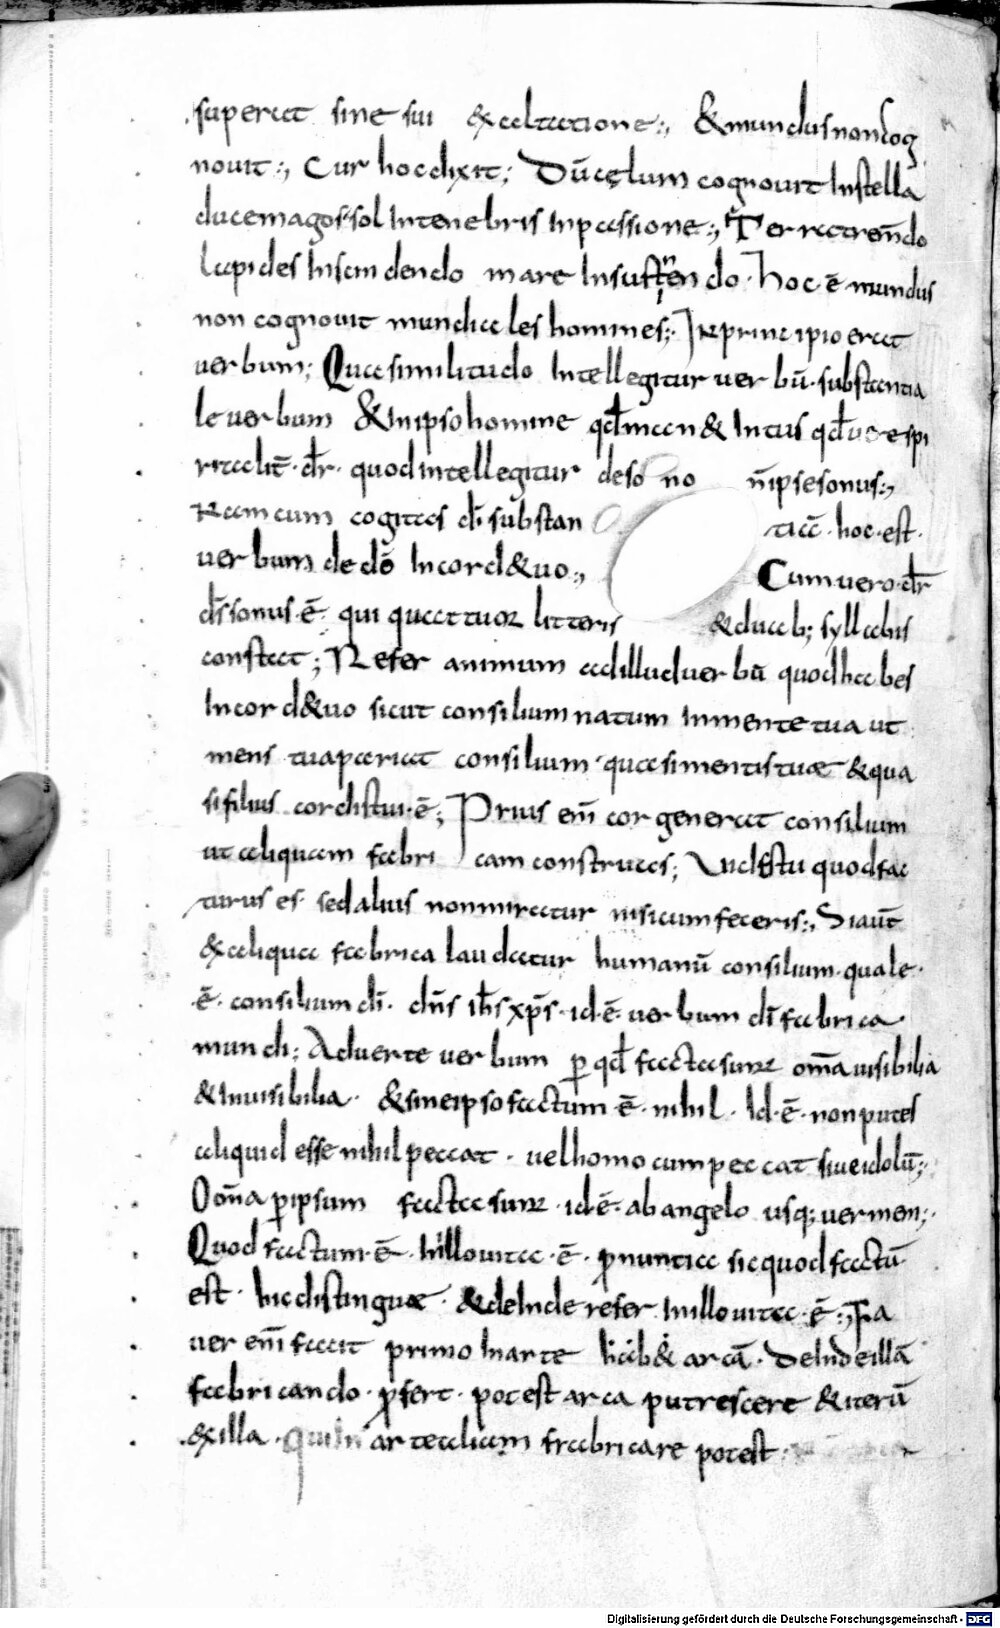 superat sine sui exaltatione:, & mundus non cog
novit:, Cur hoc dixit; Dū cęlum cognovit in stella
duce magos· sol in tenebris in passione:, Terra trem̄do
lapides in scindendo mare in sustinendo· hoc ē mundus
non cognovit mundiales homines:; In principio erat
verbum; Qua similitudo intellegitur verbū· substantia
le verbum & in ipso homine qd̄ man& intus qd̄ vere spi
ritalit̄· dr̄· quod intellegitur de sono n̄ ipse sonus:,
Nam cum cogitas dī substantiā· hoc est·
verbum de dō in cord& uo:, Cum vero· dr̄
ds̄ sonus· ē· qui quattuor litteris & duab; syllabis
constat; Refer animum ad illud verbū quod habes
in cord& uo sicut consilium natum in mente tua ut
mens tua pariat consilium· quasi mentis tuæ & qua
si filius cordis tui· ē; Prius enī cor generat consilium
ut aliquam fabricam construas; Vides tu quod fac
turus es· sed alius non miratur nisi cum feceris:, Si aut̄
ex aliqua fabrica laudatur humanū consilium· quale·
·ē· consilium dī· dn̄s ih̄s xp̄s· id· ē· verbum dī fabrica
mundi; Adverte verbum p qd̄ facta sunt om̄a visibilia
& invisibilia· & sine ipso factum ē· nihil· Id· ē· non putes
aliquid esse nihil peccat· vel homo cum peccat sive idolū:,
Om̄a p ipsum facta sunt· id· ē· ab angelo usq; vermen:,
Quod factum· ē· In illo vita· ē· pnuntia sic quod factū
est· hic distinguæ· & deinde refer In illo vita· ē:, Fa
ver enī facit primo in arte hab& arcā· Deinde illā
fabricando· pfert· potest arca putrescere & iterū
ex illa· qui in arte aliam frabricare potest·
Digitalisierung gefördert durch die Deutsche Forschungsgemeinschaft - DFG